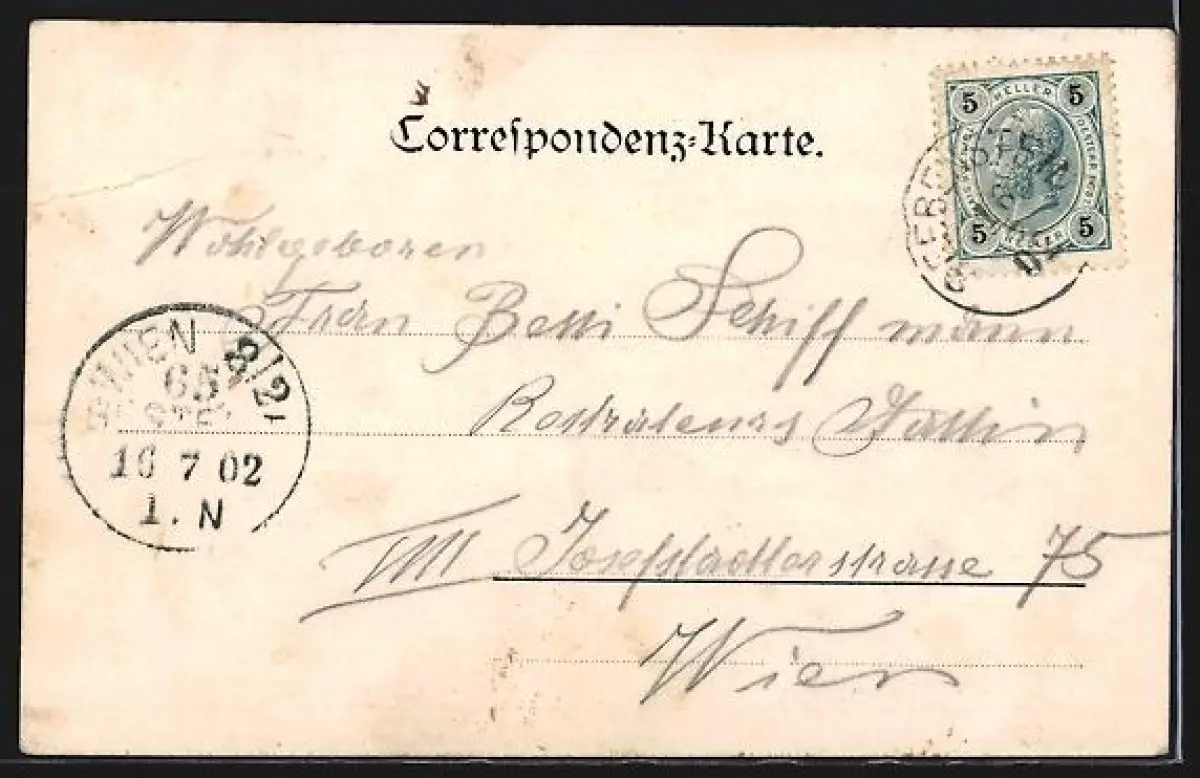 Correspondenz-Karte.
5 HELLER 5
5 HELLER 5
Wohlgeboren
Frau Betti Schiffmann
Gattin
VIII Josefstädterstrasse 75
Wien
WIEN 8/2
65
16 7 02
1. N